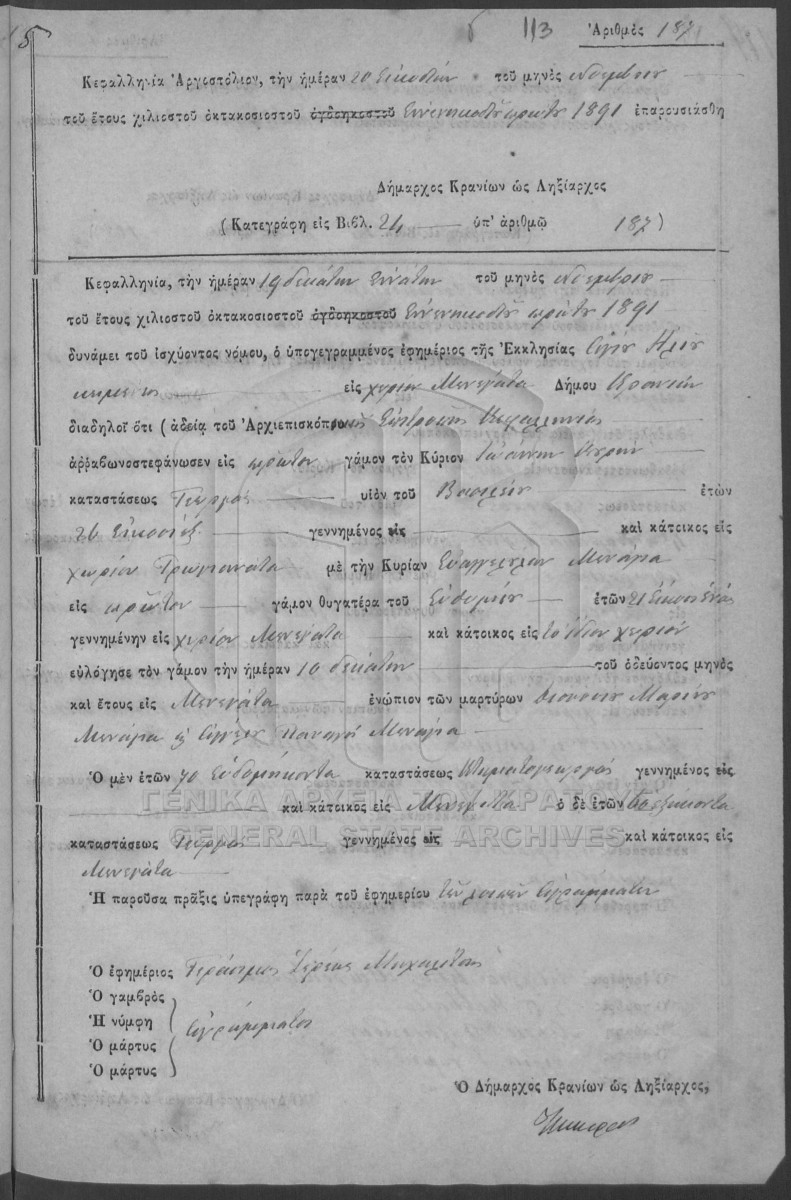 5 113 Ἀριθμὸς 187
Κεφαλληνία Ἀργοστόλιον, τὴν ἡμέραν 20 Εἰκοστὴν τοῦ μηνὸς Νοεμβρίου
τοῦ ἔτους χιλιοστοῦ ὀκτακοσιοστοῦ ὀγδοηκοστοῦ Ἐννενηκοστοῦ πρώτου 1891 ἐπαρουσιάσθη
Δήμαρχος Κρανίων ὡς Ληξίαρχος
(Κατεγράφη εἰς Βιβλ. 24 ὑπ' ἀριθμῷ 187)
Κεφαλληνία, τὴν ἡμέραν 19 δεκάτην Ἐννάτην τοῦ μηνὸς Νοεμβρίου
τοῦ ἔτους χιλιοστοῦ ὀκτακοσιοστοῦ ὀγδοηκοστοῦ Ἐννενηκοστοῦ πρώτου 1891
δυνάμει τοῦ ἰσχύοντος νόμου, ὁ ὑπογεγραμμένος ἐφημέριος τῆς Ἐκκλησίας Ἁγίου Ἠλίου
εἰς χωρίον Μενεγάτα Δήμου Κρανίων
διαδηλοῖ ὅτι (ἀδείᾳ τοῦ Ἀρχιεπισκόπου Ἐπιτροπῆς Κεφαλληνίας
ἀῤῥαβωνοστεφάνωσεν εἰς πρῶτον γάμον τὸν Κύριον Ἰωάννην
καταστάσεως Γεωργὸς υἱὸν τοῦ Βασιλείου ἐτῶν
26 Εἰκοσιέξ γεννημένος εἰς καὶ κάτοικος εἰς
χωρίον Τρωγιαννάτα μὲ τὴν Κυρίαν Εὐαγγελίαν Μενάγια
εἰς πρῶτον γάμον θυγατέρα τοῦ Εὐθυμίου ἐτῶν 21 Εἴκοσι ἑνός
γεννημένην εἰς χωρίον Μενεγάτα καὶ κάτοικος εἰς τὸ ἴδιον χωρίον
εὐλόγησε τὸν γάμον τὴν ἡμέραν 10 δεκάτην τοῦ ὁδεύοντος μηνὸς
καὶ ἔτους εἰς Μενεγάτα ἐνώπιον τῶν μαρτύρων Διονυσίου Μαρίνου
Μενάγια Παναγῆ Μενάγια
Ὁ μὲν ἐτῶν 70 Ἑβδομήκοντα καταστάσεως Κτηματογεωργός γεννημένος εἰς
καὶ κάτοικος εἰς Μενεγάτα ὁ δὲ ἐτῶν 60 ἑξήκοντα
καταστάσεως Γεωργὸς γεννημένος εἰς καὶ κάτοικος εἰς
Μενεγάτα
Ἡ παροῦσα πρᾶξις ὑπεγράφη παρὰ τοῦ ἐφημερίου τῶν λοιπῶν ἀγραμμάτων
Ὁ ἐφημέριος Γεράσιμος Ἱερεὺς
Ὁ γαμβρὸς
Ἡ νύμφη ἀγράμματοι
Ὁ μάρτυς
Ὁ μάρτυς
Ὁ Δήμαρχος Κρανίων ὡς Ληξίαρχος,
ΓΕΝΙΚΑ ΑΡΧΕΙΑ ΤΟΥ ΚΡΑΤΟΥΣ
GENERAL STATE ARCHIVES